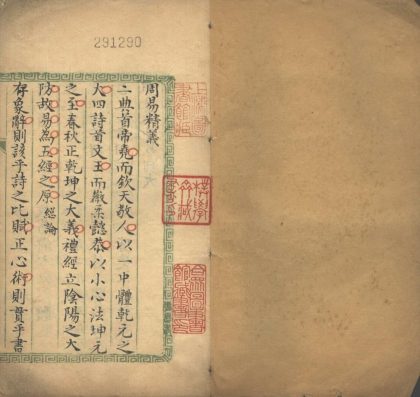 291290
周易精義
二典首帝堯而欽天敬人以一中體乾元之
大四詩首文王而徽柔懿恭以小心法坤元
之至春秋正乾坤之大義禮經立陰陽之大
防故易為五經之原 總論
存象辭則該乎詩之比賦正心術則貫乎書
上海圖書館藏